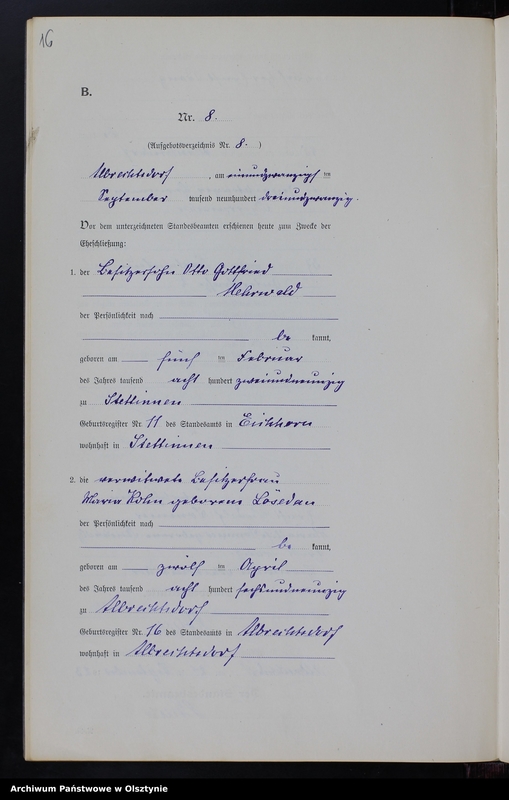 16
B.
Nr. 8.
(Aufgebotsverzeichnis Nr. 8. )
Albrechtsdorf , am einundzwanzigsten
September tausend neunhundert dreiundzwanzig.
Vor dem unterzeichneten Standesbeamten erschienen heute zum Zwecke der
Eheschließung:
1. der Besitzersohn Otto Gottfried
Mehrwald
der Persönlichkeit nach
be kannt,
geboren am fünf ten Februar
des Jahres tausend acht hundert zweiundneunzig
zu Stettinnen
Geburtsregister Nr. 11 des Standesamts in Eichhorn
wohnhaft in Stettinnen
2. die verwitwete Besitzerfrau
Maria Kohn geborene Lösedau
der Persönlichkeit nach
be kannt,
geboren am zwölf ten April
des Jahres tausend acht hundert sechsundneunzig
zu Albrechtsdorf
Geburtsregister Nr. 16 des Standesamts in Albrechtsdorf
wohnhaft in Albrechtsdorf
Archiwum Państwowe w Olsztynie